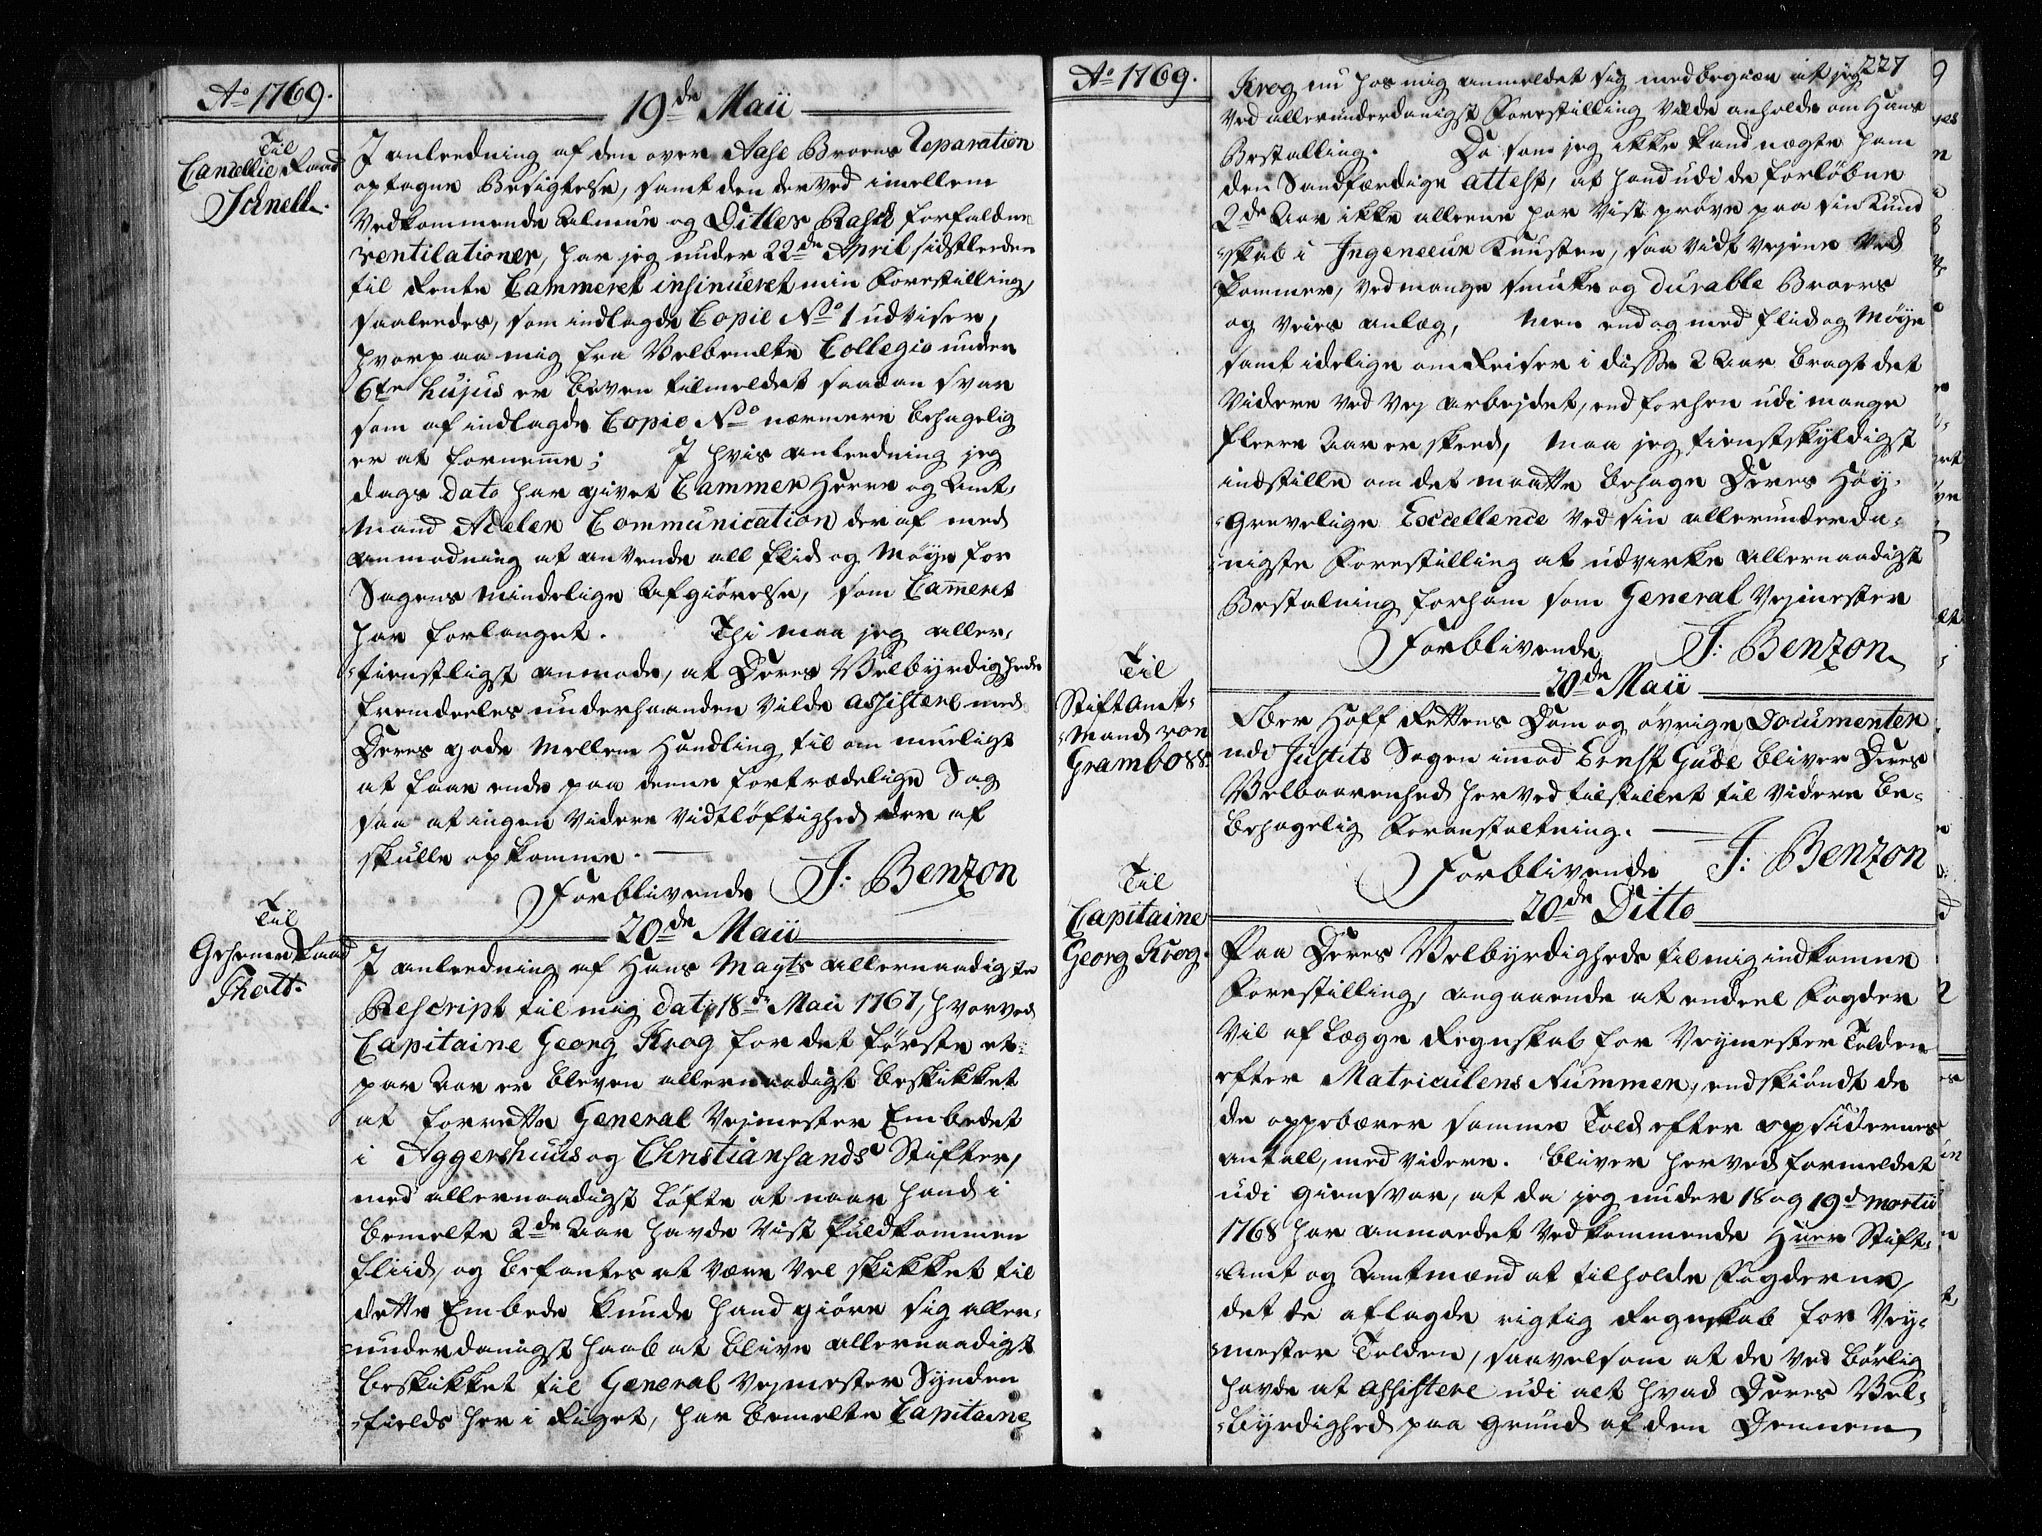 Ao 1769.
19de Maii
Til
Cancellie Raad
Schnell.
I anleedning af den over Aase Broens Reparation
optagne Besigtelse, samt den derved imellem
Vedkommende Almue og Ditler Rasch forfaldne
ventilationer, har jeg under 22de April sidstleeden
til Rente Cammeret insinueret min Forestilling,
saaleedes, som indlagde Copie No 1 udviser,
hvorpaa mig fra Velbemelte Collegio under
6te hujus er bleven tilmeldet saadan svar
som af indlagde Copie No nærmere behagelig
er at fornemme; I hvis anleedning jeg
dags dato har givet Cammer Herre og Amt-
mand Adeler Communication der af med
anmodning at anvende all flid og Møye for
Sagens mindelige Afgiørelse, som Cammeret
har forlanget. Thi maa jeg aller-
tienstligst anmode, at Deres Velbyrdighed
fremdeeles underhaanden vilde assistere med
Deres gode Mellem Handling til om mueligt
at faae ende paa denne fortrædelige Sag
saa at ingen videre vidtløftighed der af
skulle opkomme.
Forblivende J: Benzon
20de Maii
Til
Geheime Raad
Thott.
I anleedning af Hans Mayts allernaadigste
Rescript til mig dat: 18de Maii 1767, hvorved
Capitaine Georg Krog for det første et
par Aar er bleven allernaadigst beskikket
at forrette General Vejmester Embedet
i Aggershuus og Christiansands Stifter,
med allernaadigst Løfte at naar hand i
bemelte 2de Aar havde vist fuldkommen
fliid, og befantes at være vel skikket til
dette Embede kunde hand giøre sig aller-
underdanigst haab at blive allernaadigst
beskikket til General Vejmester Synden
fields her i Riget, har bemelte Capitaine
Ao 1769.
227
Krog nu hos mig anmeldet sig med begiær at jeg
ved allerunderdanigst Forestilling vilde anholde om Hans
Bestalling. Da som jeg ikke kand nægte ham
den Sandfærdige attest, at hand udi de forløbne
2de Aar ikke alleene har vist prøve paa sin Kund
skab i Ingenieur Kunsten, saa vidt Vejene ved
kommer, ved mange smukke og durable Broers
og Veies anlæg, Men end og med fliid og Møye
samt idelige om Reiser i disse 2 Aar bragt det
videre ved Vej arbejdet, end forhen udi mange
fleere Aar er skeed, maa jeg tienstskyldigst
indstille om det maatte behage Deres Høy-
Grevelige Excellence ved sin allerunderda-
nigste Forestilling at udvirke allernaadigst
Bestalning for ham som General Vejmester
Forblivende J: Benzon
20de Maii
Til
Stift Amt-
mand von
Grambow
Ober Hoff Rettens Dom og øvrige Documenter
udi Justits Sagen imod Ernst Gude bliver Deres
Velbaarenhed herved tilstillet til videre be-
behagelig Foranstaltning.
Forblivende J: Benzon
20de Ditto
Til
Capitaine
Georg Krog.
Paa Deres Velbyrdigheds til mig indkomne
Forestilling, angaaende at endeel Fogder
vil aflægge Regnskab for Veymester Tolden
efter Matriculens Nummer, endskiøndt de
de oppebærer samme Told efter opsidernes
antall, med videre. bliver herved formeldet
udi giensvar, at da jeg under 18 og 19de Martii
1768 har anmodet Vedkommende Herr Stift-
Amt og Amtmænd at tilholde Fogderne,
det de aflagde rigtig Regnskab for Vey-
mester Tolden, saavelsom at de ved børlig
havde at assistere udi alt hvad Deres Vel-
byrdighed paa Grund af den Dennem